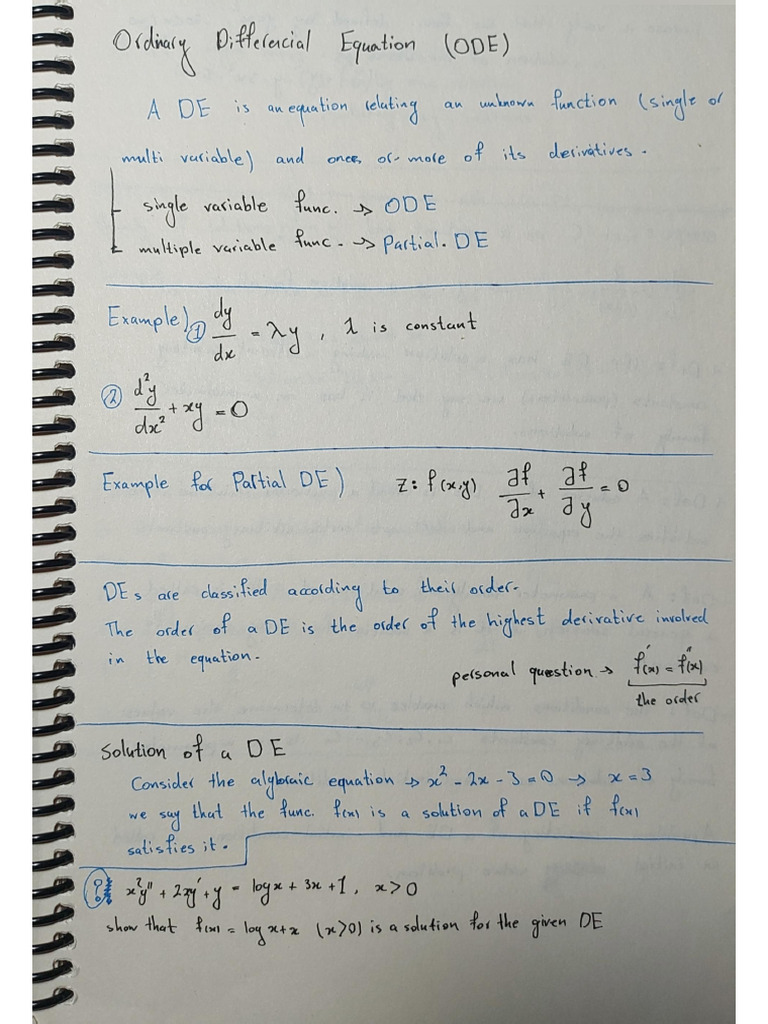 Ordinary Differencial Equation (ODE)
A DE is an equation relating an unknown function (single or
multi variable) and ones or more of its derivatives.
single variable func. → ODE
multiple variable func. → Partial. DE
Example) ① dy/dx = λy, λ is constant
② d²y/dx² + xy = 0
Example for Partial DE) z: f(x,y) ∂f/∂x + ∂f/∂y = 0
DEs are classified according to their order.
The order of a DE is the order of the highest derivative involved
in the equation.
personal question → f'(x) = f''(x)
the order
Solution of a DE
Consider the algbraic equation → x² - 2x - 3 = 0 → x = 3
we say that the func. f(x) is a solution of a DE if f(x)
satisfies it.
? x²y'' + 2xy' + y = log x + 3x + 1, x > 0
show that f(x) = log x + x (x>0) is a solution for the given DE